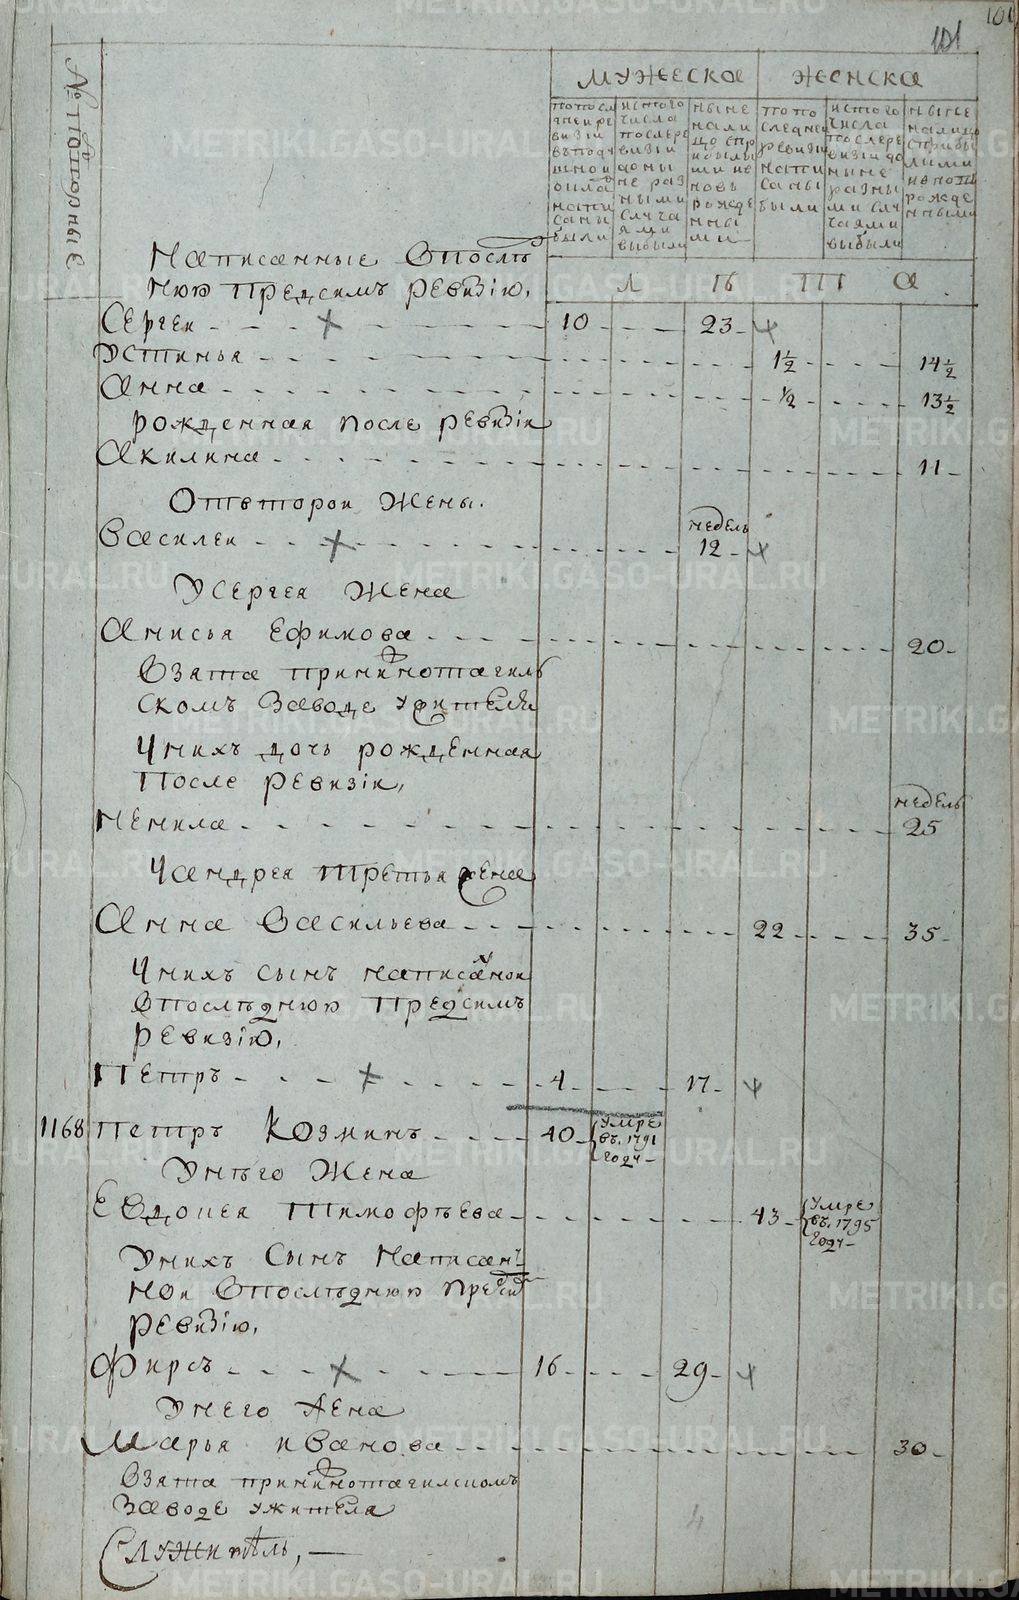 101
101
№ Повторные
МУЖЕСКА ЖЕНСКА
по последней ревизiи въ подушной окладъ написаны были
изъ того числа после ревизiи до ныне разными случаями выбыли
ныне на лицо с прибылыми и вновь рожденными
по последней ревизiи написаны были
изъ того числа после ревизiи до ныне разными случаями выбыли
ныне на лицо с прибылыми и вновь рожденными
Написанные впослѣд
нюю предсимъ ревизiю,
Л IЬ III А
Сергеи - - - 10 - - 23
Устинья - - - 1½ - - 14½
Анна - - - ½ - - 13½
рожденная после ревизiи
Акилина - - - 11
Отвторои Жены.
недель
Василеи - - - 12
Усергея Жена
Анисья Ефимова - - - 20
Взята принижнотагиль
скомъ Заводе ужителя
Унихъ дочь рожденная
После ревизiи,
недель
Ненила - - - 25
Уандрея третья жена
Анна Васильева - - - 22 - - 35
Унихъ сынъ написанои
впослѣднюю предсимъ
ревизiю,
Петръ - - - 4 - - 17
1168 Петръ Козминъ - - - 40 Умре въ 1791 году
Унѣго Жена
Евдокея Тимофѣева - - - 43 Умре въ 1795 году
Унихъ Сынъ Написан
нои Впослѣднюю пред
ревизiю,
Фирсъ - - - 16 - - 29
Унего Жена
Марья иванова - - - 30
Взята принижнотагилскомъ
Заводе ужителя
4
Служитѣль,
METRIKI.GASO-URAL.RU